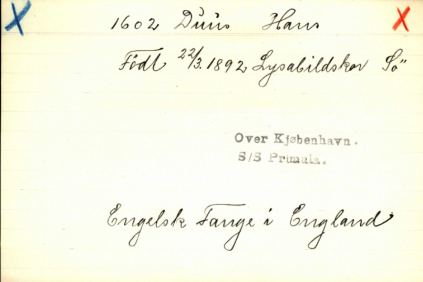 1602 Duus Hans
Födt 22/3. 1892 Lysabildskov Sö"
Over Kjøbenhavn.
S/S Primula.
Engelsk Fange i England